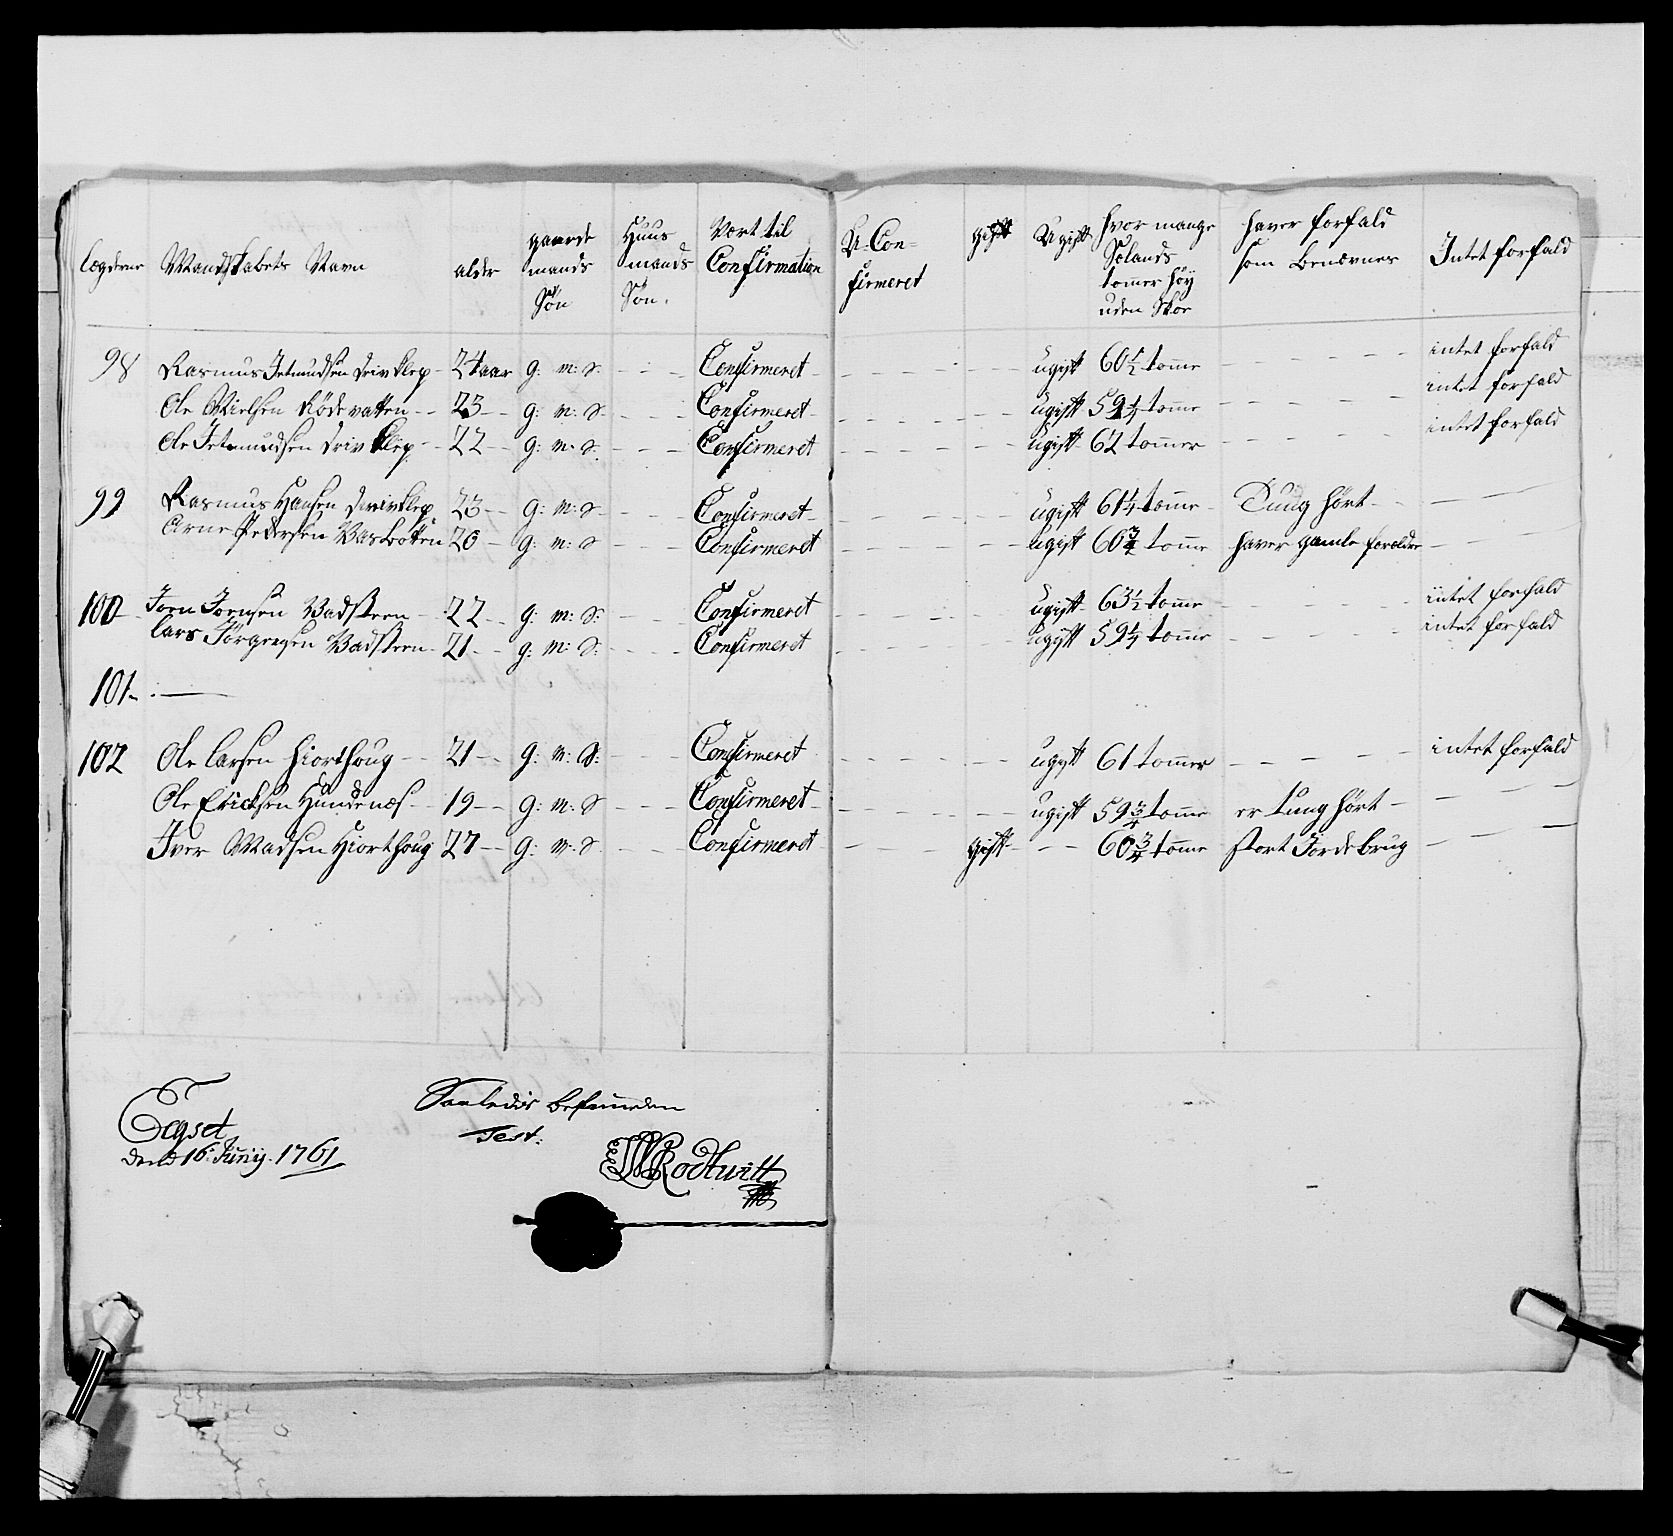 Lægderne Mandskabets Navn alder gaarde mands Søn Huus mands Søn. Vært til Confirmation U-Con= firmeret gift Ugift hvor mange Sølands tommer høy uden Skoe haver forfald som benævnes Intet forfald
98 Rasmus Jetmundsen Drivklep - 24 aar g: m: S. - - - Confirmeret - - - - ugift 60 1/2 tomme - - - - intet forfald
Ole Nielsen Rødevatten - - 23 - - g: m: S. - - - Confirmeret - - - - ugift 59 1/4 tomme - - - - intet forfald
Ole Jetmundsen Drivklep - - 22 - - g: m: S. - - - Confirmeret - - - - ugift 62 tommer - - - - intet forfald
99 Rasmus Hansen Drivklep 23 - - g: m: S - - - Confirmeret - - - - ugift 61 1/4 tomme - Tung hørt - - - -
Arne Pedersen Vasbotten 20 - - g: m: S - - - Confirmeret - - - - ugift 60 3/4 tomme haver gamle forældre - - -
100 - Jorn Jornsen Vadsteen - 22 - - g: m: S: - - - Confirmeret - - - - ugift 63 1/2 tomme - - - - intet forfald
Lars Jørgensen Vadsteen - 21 - - g: m: S: - - - Confirmeret - - - - ugift 59 1/4 tomme - - - - intet forfald
101 - . ———
102 Ole Larsen Hiorthoug - - 21 - - g: m: S: - - - Confirmeret - - - - ugift 61 tommer - - - - intet forfald
Ole Ericksen Hundenæs - - 19 - - g: m: S - - - Confirmeret - - - - ugift 59 3/4 tomme er tung hørt - - - -
Iver Madsen Hiorthoug 27 - - g: m: S - - - Confirmeret - - - gift - - - 60 3/4 tomme stort Jordebrug - - -
Egset
den 16. Junij. 1761
Saaledes befunden
Test:
Rodtwitt